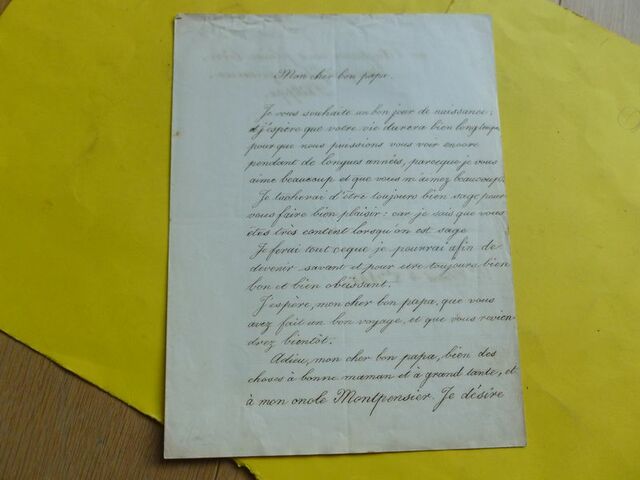 Mon cher bon papa.
Je vous souhaite un bon jour de naissance;
et j'espère que votre vie durera bien longtemps,
pour que nous puissions vous voir encore
pendant de longues années, parceque je vous
aime beaucoup et que vous m'aimez beaucoup.
Je tacherai d'être toujours bien sage pour
vous faire bien plaisir: car je sais que vous
êtes très content lorsqu'on est sage
Je ferai tout ceque je pourrai afin de
devenir savant et pour etre toujours bien
bon et bien obéissant.
J'espère, mon cher bon papa, que vous
avez fait un bon voyage, et que vous revien-
drez bientôt.
Adieu, mon cher bon papa, bien des
choses à bonne maman et à grand tante, et
à mon oncle Montpensier. Je désire